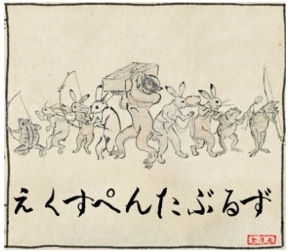 えくすぺんたぶるず